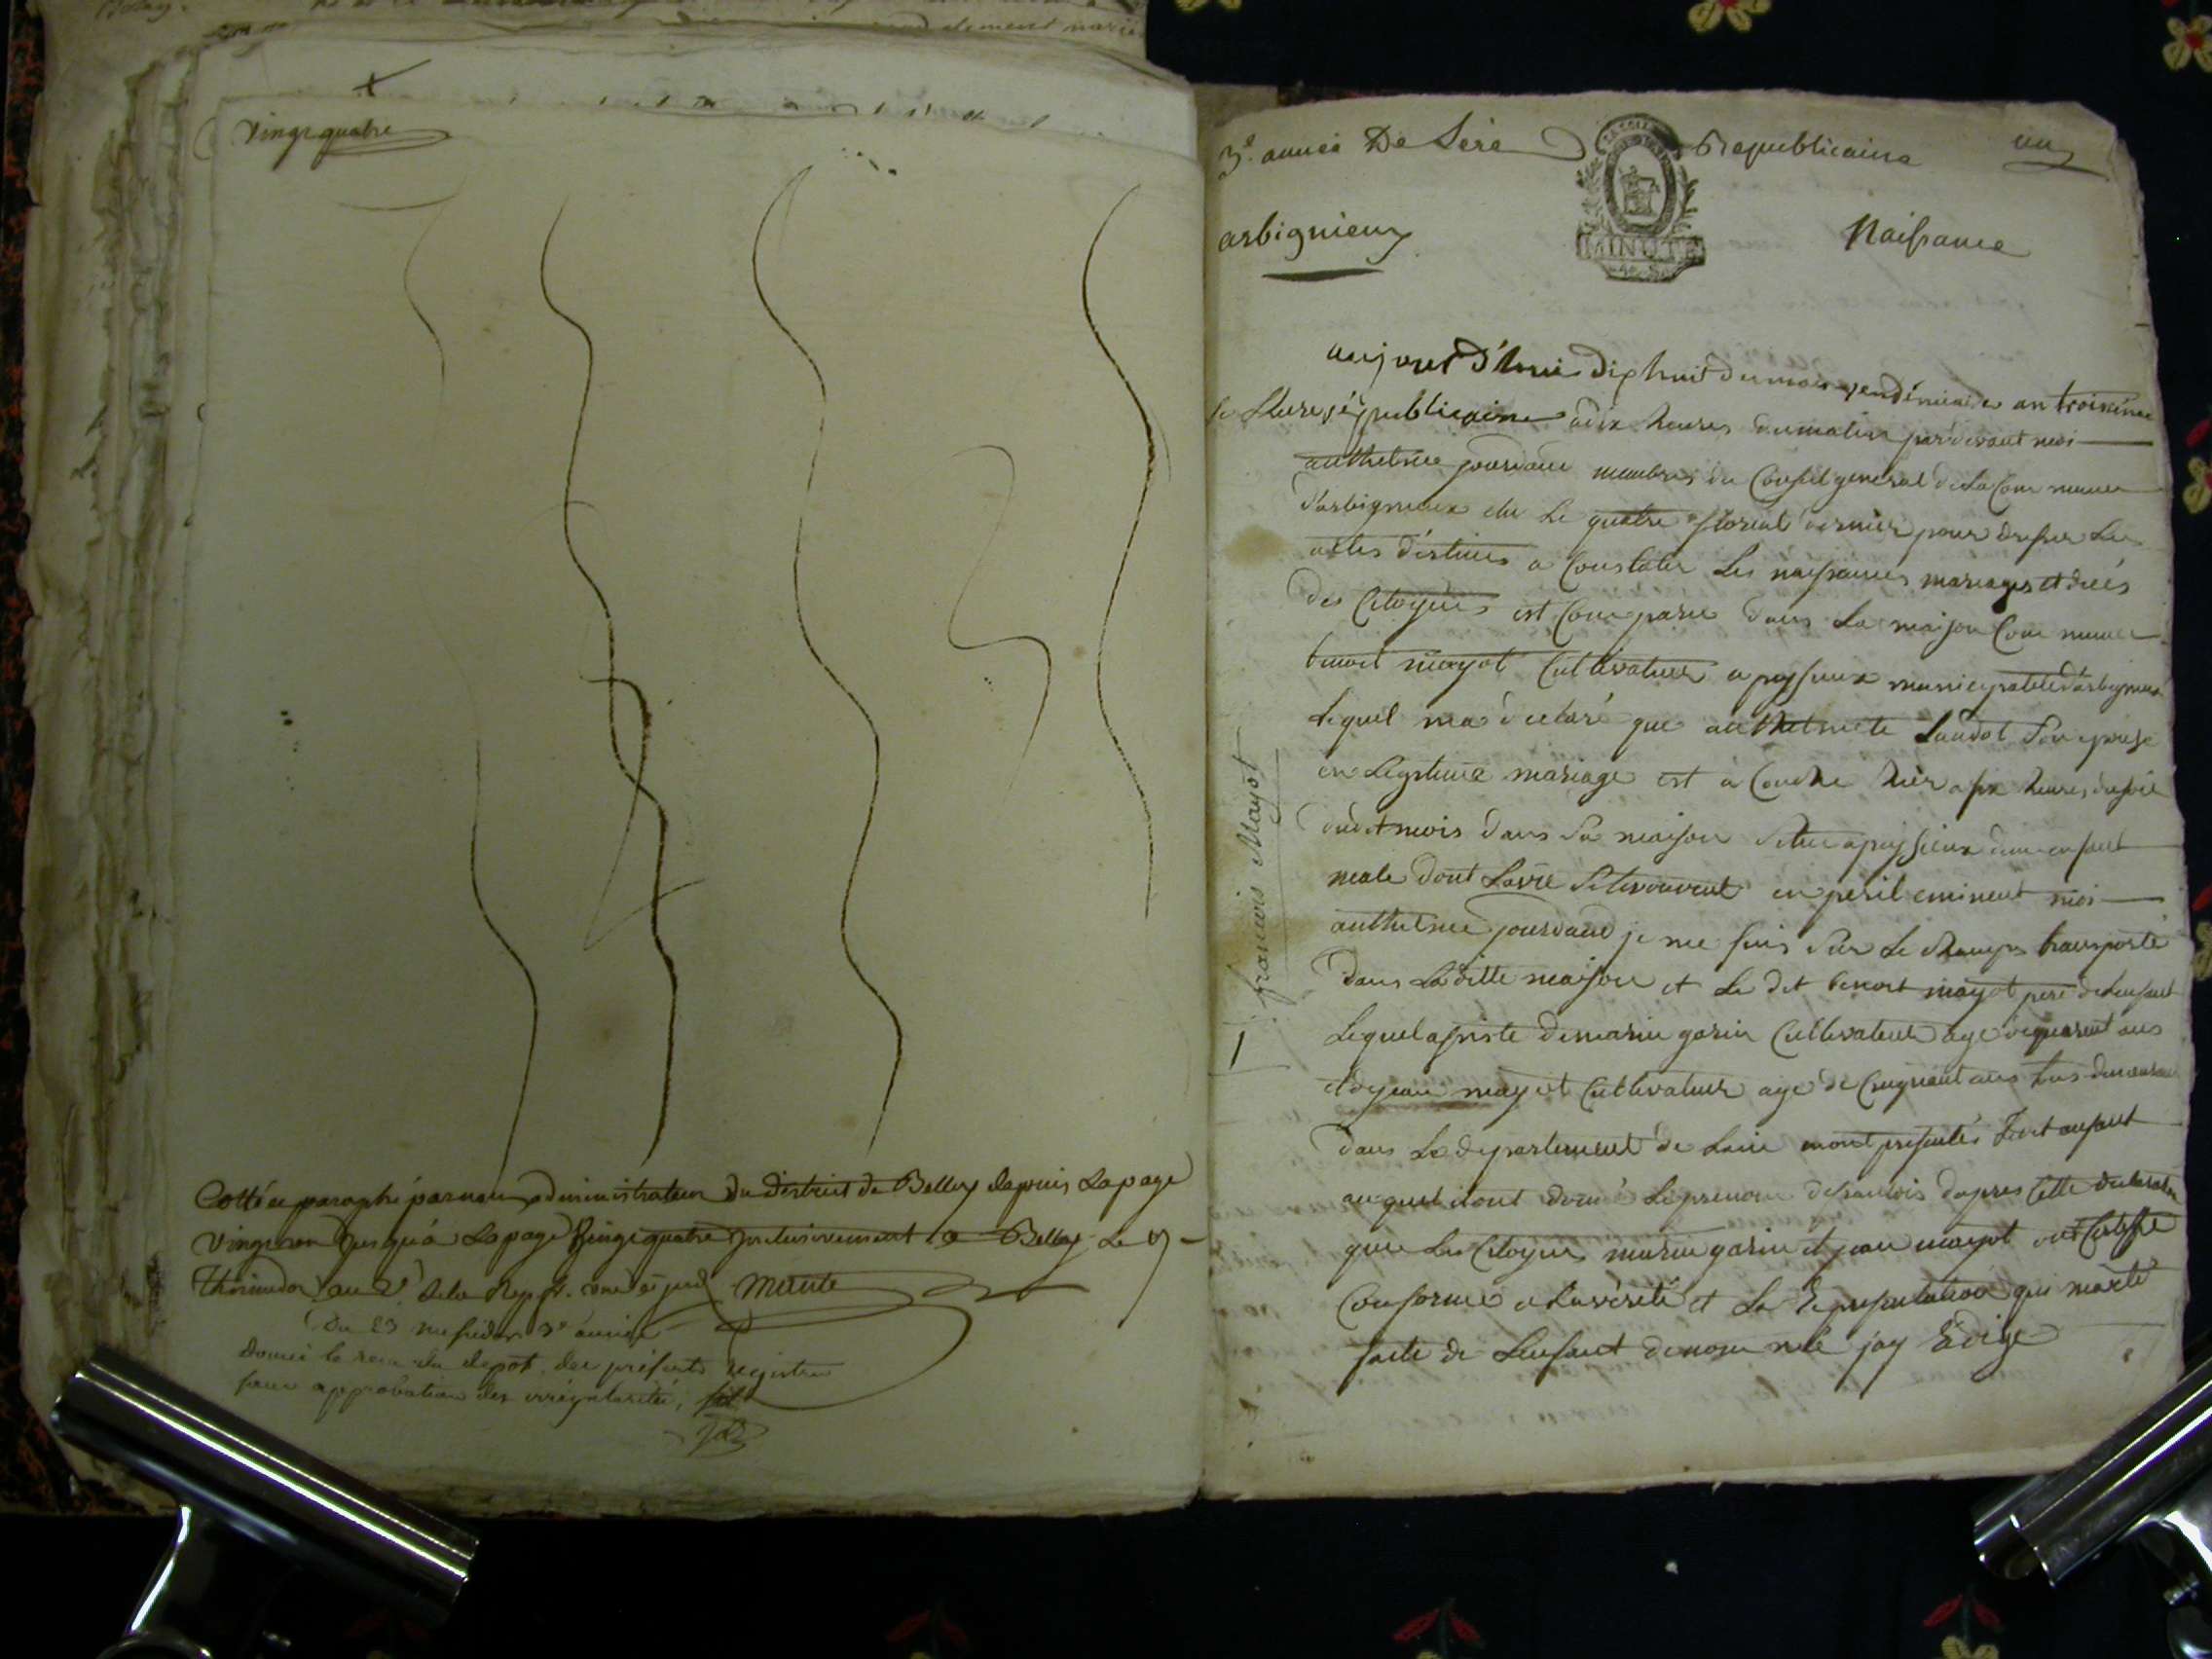 vingt quatre
Cotté et paraphé par nous administrateur du district de Belley depuis la page
vingt un jusqu'à la page vingt quatre inclusivement à Belley le 9
thermidor an 2e de la Rep. f. une et ind
Du 23 messidor 3e année
donné le recu du depot des présents registres
sans approbation des irrégularités,
3e. année De Lère Republicaine un
arbignieux Naissance
MINUTE
aujourd'hui dix huit du mois vendémiaire an troisième
de Lere républicaine a dix heures du matin pardevant moi
anthelme jourdan membres du Conseil general de la Commune
d'arbignieux elu le quatre floreal dernier pour dresser Les
actes déstinés a Constater Les naissances mariages et décés
des Citoyens est Comparu dans La maison Commune
benoit mayot Cultivateur a peysieux municipalité d'arbignieux
Lequel ma declaré que anthelmete Landot Son epouse
en Legitime mariage est à Couché hier a six heures du soir
dudit mois dans Sa maison Situé a peysieux d'un enfant
male dont Lavie Setrouvent en peril eminent moi
anthelme jourdan je me suis Sur Le Champs transporté
Dans La ditte maison et Le dit benoit mayot pere de Lenfant
Lequel assisté de marin garin Cultivateur agé de quarent ans
et de jean mayot Cultivateur agé de Cinquant ans tus
dans Le departement de Lain mont presentés
auquel ilont donné Le prenom de francois dapres Cette declaration
que Les Citoyens marin garin et jean mayot ont
Conforme a La vérité et La representation qui ma été
faite de Lenfant denommé jay Rédigé
francois Mayot
1